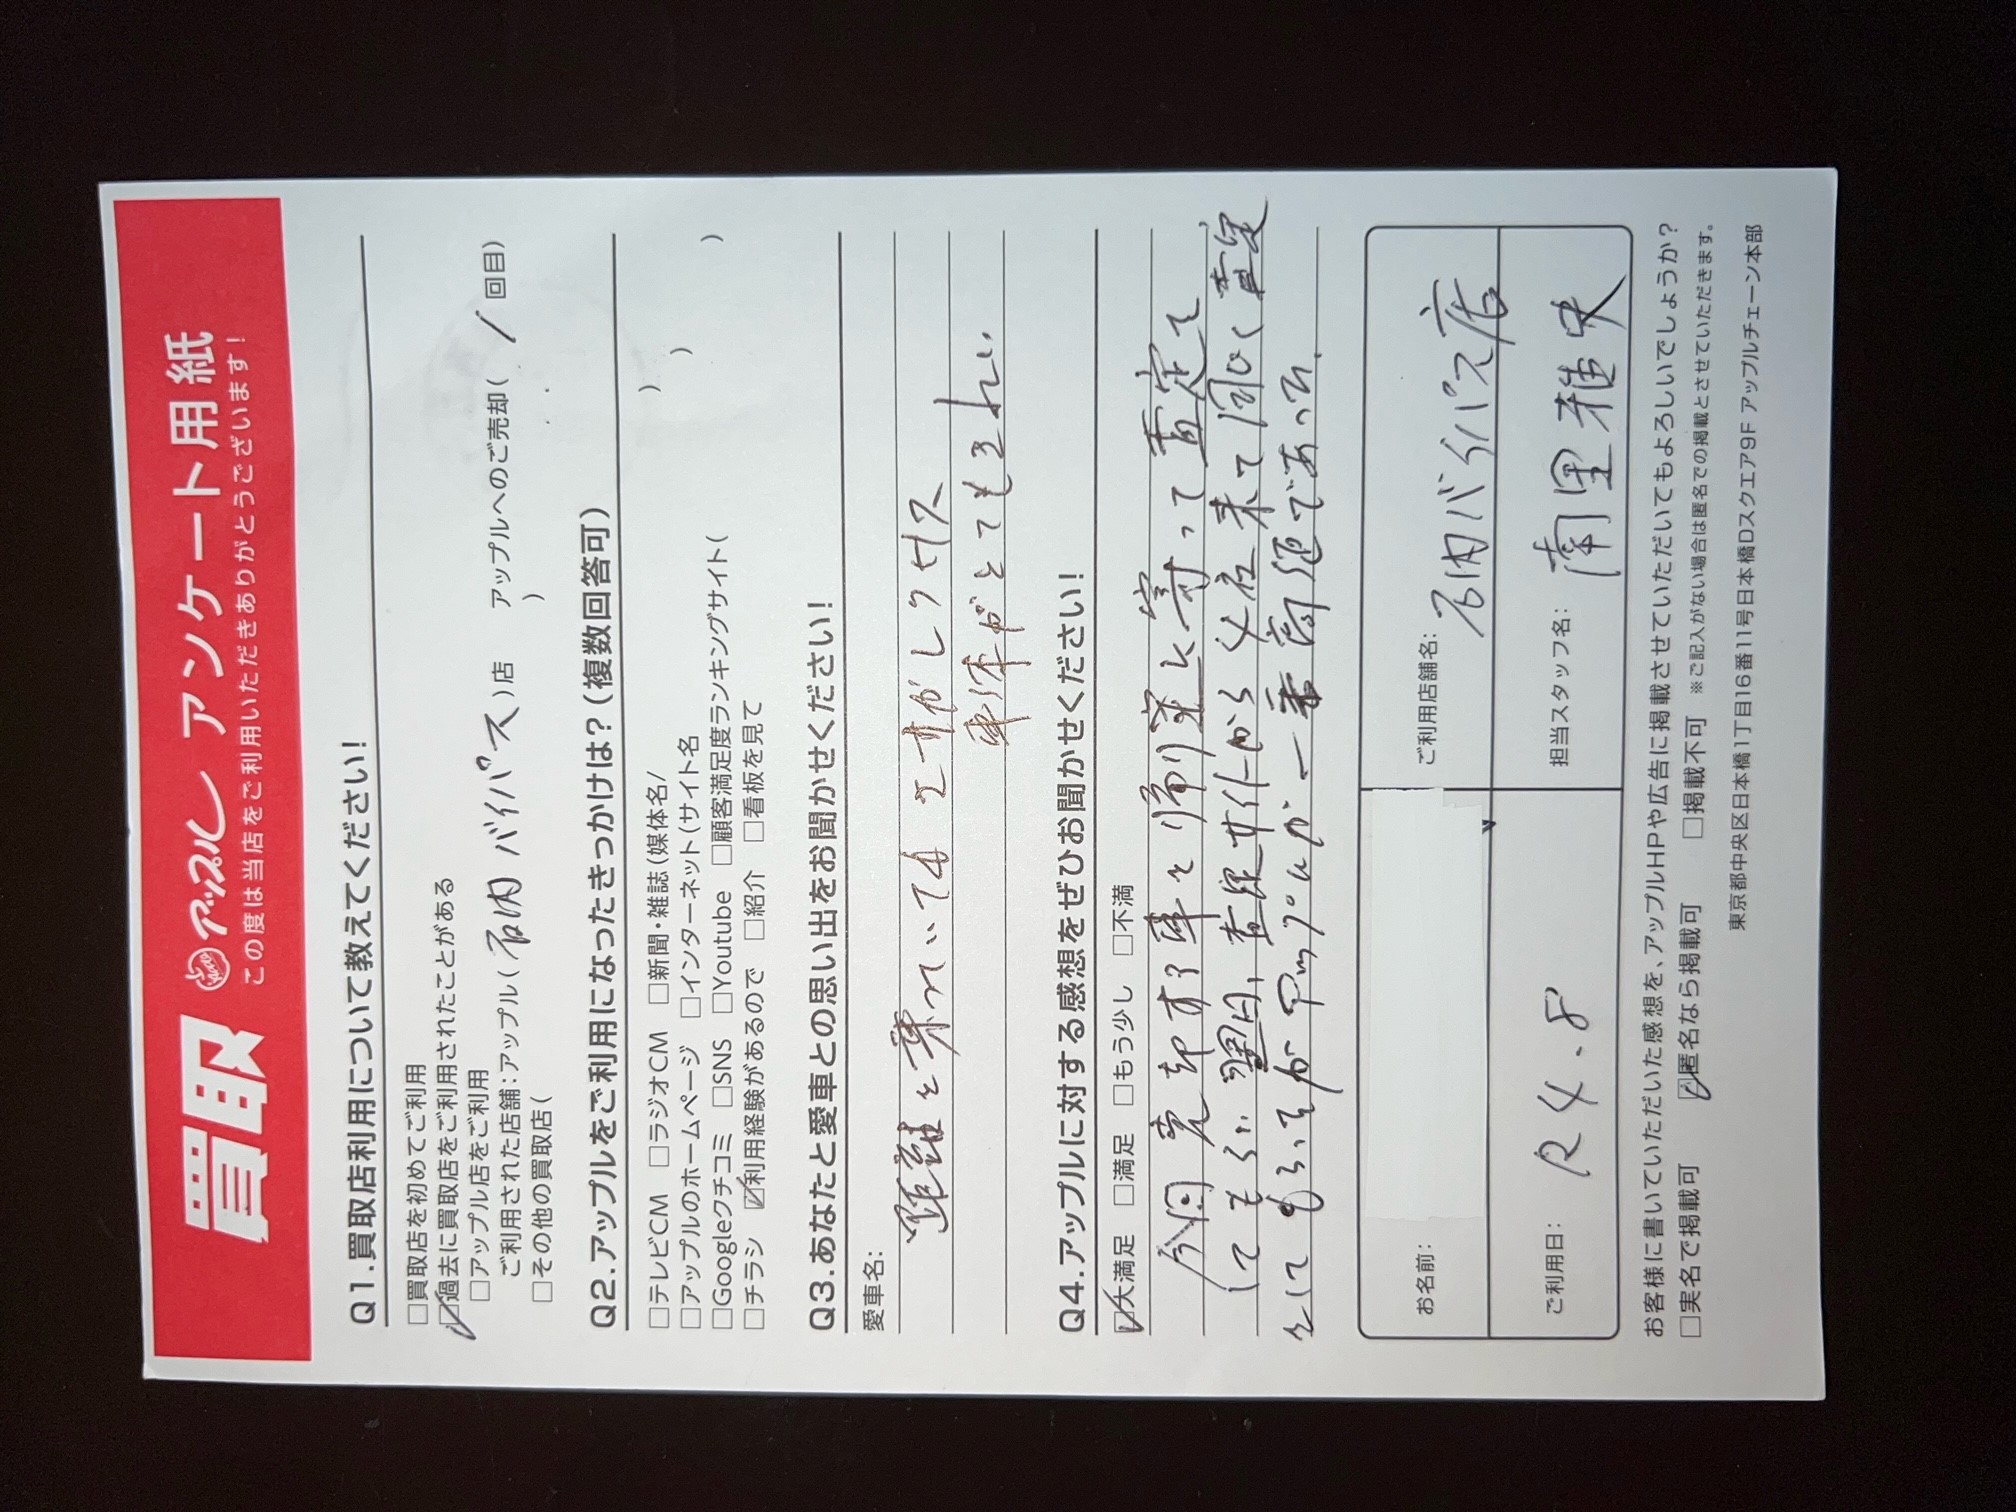 買取 アップル アンケート用紙
この度は当店をご利用いただきありがとうございます！
Q1.買取店利用について教えてください！
□買取店を初めてご利用
☑過去に買取店をご利用されたことがある
□アップル店をご利用
ご利用された店舗：アップル（石内バイパス）店　アップルへのご売却（ 1 回目）
□その他の買取店（　）
Q2.アップルをご利用になったきっかけは？（複数回答可）
□テレビCM □ラジオCM □新聞・雑誌（媒体名/　）
□アップルのホームページ □インターネット（サイト名　）
□Googleクチコミ □SNS □Youtube □顧客満足度ランキングサイト（　）
□チラシ ☑利用経験があるので □紹介 □看板を見て
Q3.あなたと愛車との思い出をお聞かせください！
愛車名：
距離を乗れいても エサがしクセス
車体がとてもきれい
Q4.アップルに対する感想をぜひお聞かせください！
☑大満足 □満足 □もう少し □不満
今回売却する車を帰り際に寄って査定を
してもらい翌日、査定サイトから4社来て同じく査定
をしてもらったがアップルが一番高値であった。
お名前：
ご利用店舗名： 石内バイパス店
ご利用日： R4.8
担当スタッフ名： 南里雅史
お客様に書いていただいた感想を、アップルHPや広告に掲載させていただいてもよろしいでしょうか？
□実名で掲載可 ☑匿名なら掲載可 □掲載不可 ※ご記入がない場合は匿名での掲載とさせていただきます。
東京都中央区日本橋1丁目16番11号日本橋Dスクエア9F アップルチェーン本部